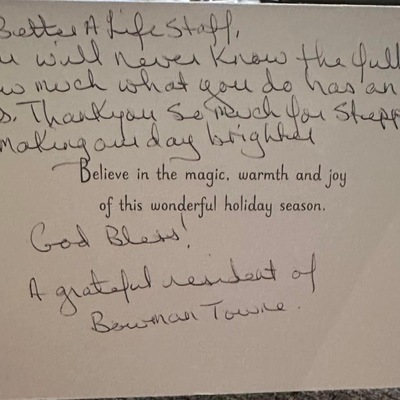 Better A Life Staff,
u will never know the full
ow much what you do has an
s. Thankyou so much for stepp
making our day brighter
Believe in the magic, warmth and joy
of this wonderful holiday season.
God Bless!
A grateful resident of
Bowman Towne.